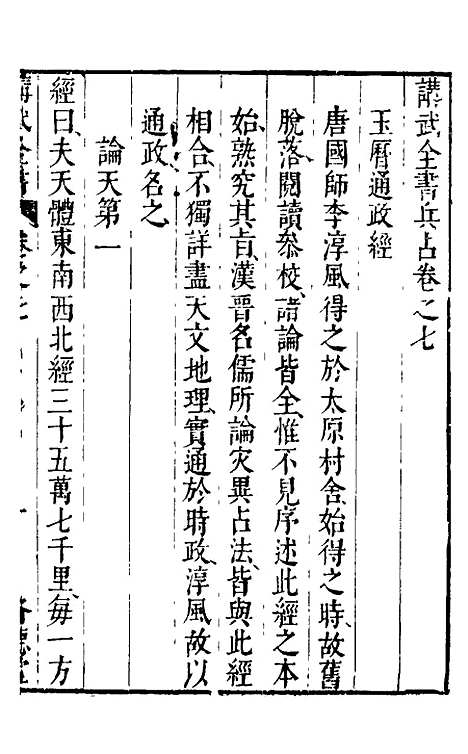 講武全書兵占卷之七
玉曆通政經
唐國師李淳風得之於太原村舍始得之時故舊
脫落閱讀叅校諸論皆全惟不見序述此經之本
始熟究其旨漢晉名儒所論災異占法皆與此經
相合不獨詳盡天文地理實通於時政淳風故以
通政名之
論天第一
經曰夫天體東南西北經三十五萬七千里每一方